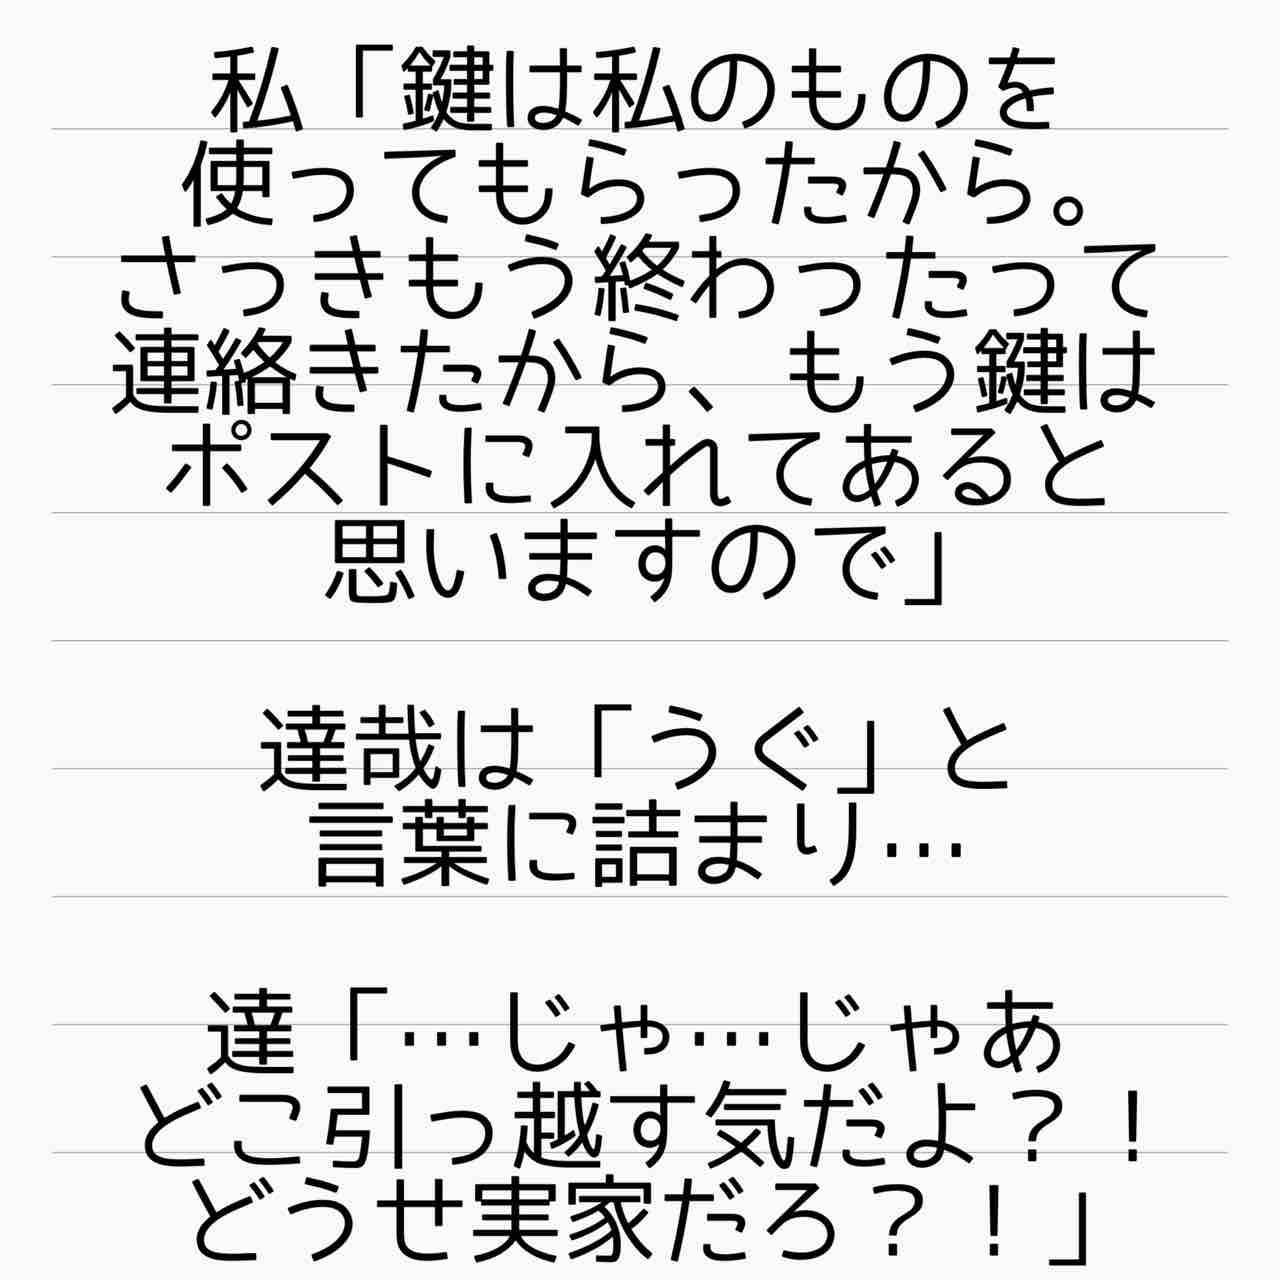 私「鍵は私のものを
使ってもらったから。
さっきもう終わったって
連絡きたから、もう鍵は
ポストに入れてあると
思いますので」
達哉は「うぐ」と
言葉に詰まり…
達「…じゃ…じゃあ
どこ引っ越す気だよ？！
どうせ実家だろ？！」